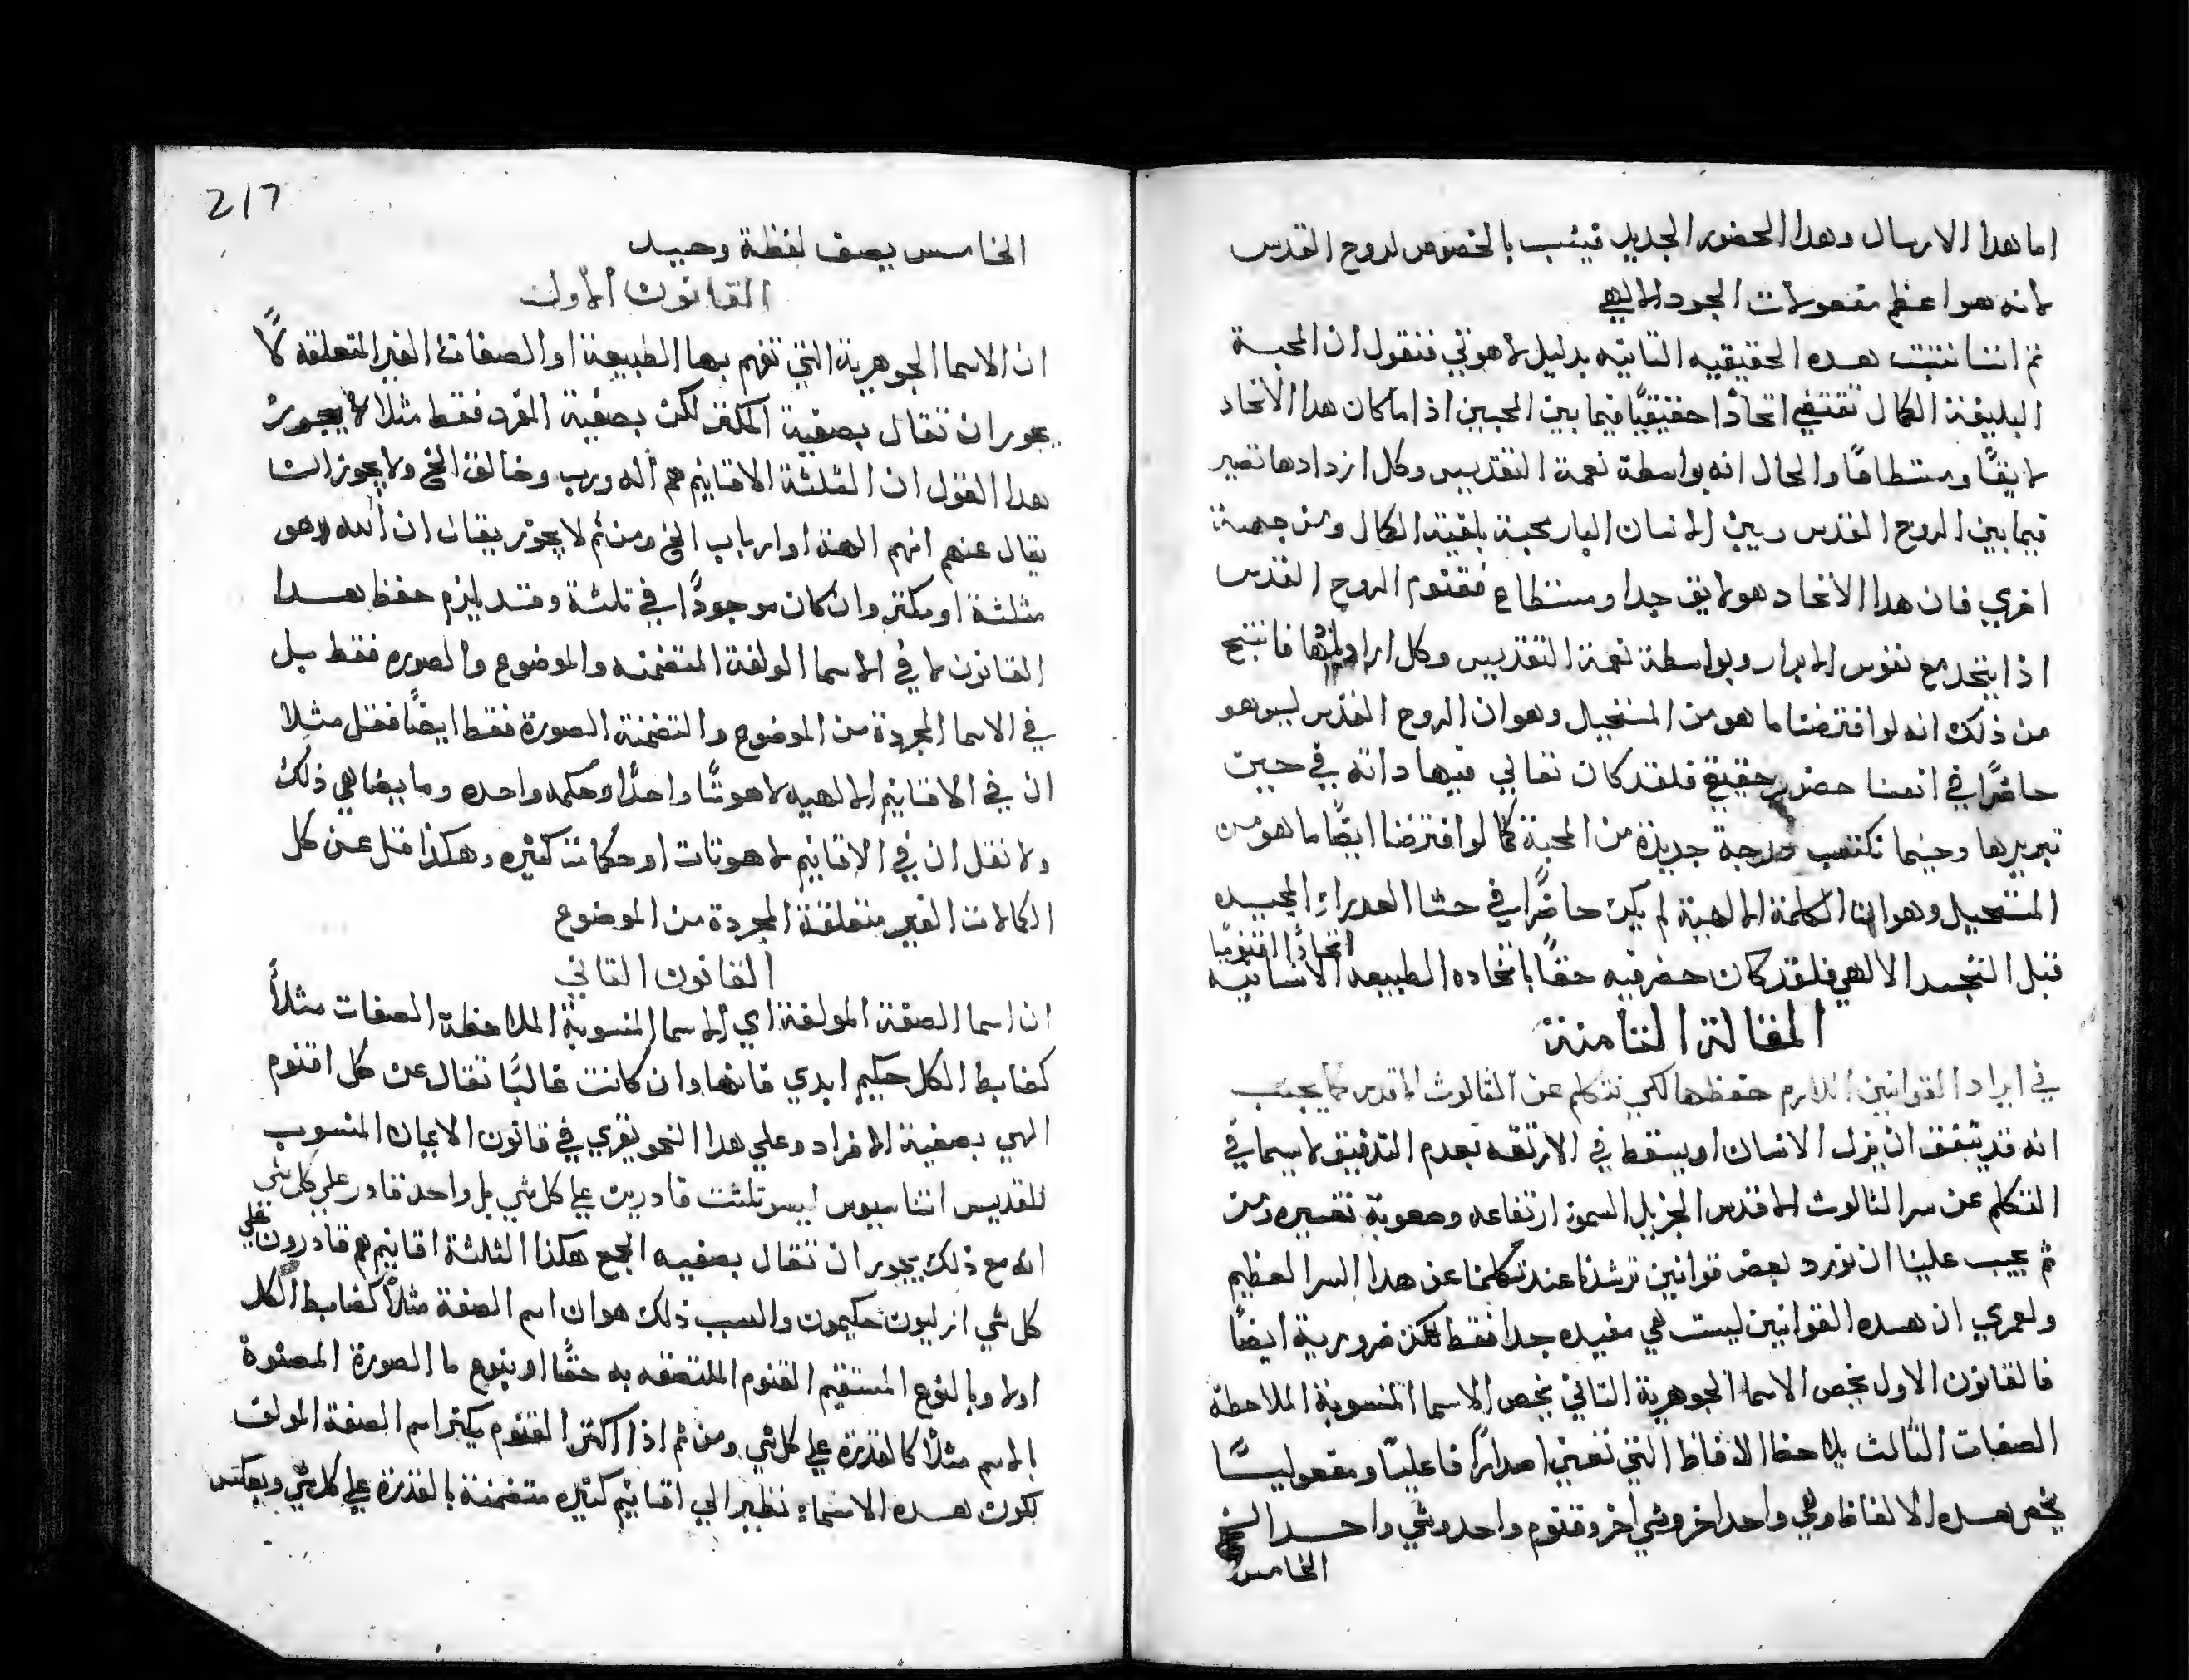 اما هدا الارسال وهدا الحضور الجديد فينسب بالخصوص لروح القدس
لانه هو اعظم مفعولات الجود الالهي
ثم اننا نتبت هده الحقيقيه التانيه بدليل لاهوتي فنقول ان المحبة
البليغة الكمال تقتضي اتحادًا حقيقيًا فيما بين المحبين اذا ما كان هدا الاتحاد
لايقًا ومستطاعًا والحال انه بواسطة نعمة التقديس وكل ازديادها تصير
فيما بين الروح القدس وبين الانسان البار محبة بلغية الكمال ومن جهة
اخري فان هدا الاتحاد هو لايق جدا ومستطاع فقنوم الروح القدس
اذا يتحد مع نفوس الابرار وبواسطة نعمة التقديس وكل فانتتج
من ذلك انه لو افترضنا ما هو من المستحيل وهو ان الروح القدس ليس هو
حاضرًا في انفسنا حضور حقيقي فلقد كان تعالي فيها داته في حين
تبريرها وحينما تكتسب درجة جديدة من المحبة كما لو افترضنا ايضًا ما هو من
المستحيل وهو ان الكلمة الالهية لم يكن حاضرًا في حشا العدراء المجيده
قبل التجسد الالهي فلقد كان حضر فيه حقًا باتحاده الطبيعه الانسانيه اتحادًا اقنوميًا
المقالة التامنة
في ايراد القوانين اللازم حفظها لكي نتكلم عن التالوث الاقدس كما يجب
انه قد يتفق ان يزل الانسان او يسقط في الارتقه بعدم التدقيق لاسيما في
التكلم عن سر الثالوث الاقدس الجزيل السمو ارتفاعه وصعوبة تفسيره ومن
ثم يجب علينا ان نورد بعض قوانين ترشدنا عند تكلمنا عن هدا السر العظيم
ولعمري ان هده القوانين ليست هي مفيده جدا فقط لكن ضرورية ايضًا
فالقانون الاول يخص الاسما الجوهرية التاني يخص الاسما المنسوبة الملاحظة
الصفات التالث يلاحظ الالفاظ التي تعني اصدارًا فاعليًا ومفعوليًا
يخص هده الالفاظ وهي واحد اخر وشي اخر وقنوم واحد وشي واحد الخ
الخامس
217
الخامس يصف لفظة وحيد
القانون الاول
ان الاسما الجوهرية التي تفهم بها الطبيعة او الصفات الغير المتعلقه كلًا
يجوز ان تقال بصفية المكتر لكن بصفية المفرد فقط مثلا لا يجوز
هدا القول ان الثلثة الاقانيم هم اله ورب وخالق الخ ولا يجوز ان
يقال عنهم انهم الهة او ارباب الخ ومن ثم لا يجوز يقال ان الله هو
مثلثة او مكتر وان كان موجودًا في تلثة وقد يلزم حفظ هدا
القانون لا في الاسما المولفة المتضمنه والموضوع والصوره فقط بل
في الاسما المجردة من الموضوع والمتضمنة الصورة فقط ايضًا فقل مثلا
ان في الاقانيم الالهيه لاهوتًا واحدًا وحكمه واحده وما يضاهي ذلك
ولا نقل ان في الاقانيم لاهوتات او حكمات كتيره وهكذا قل عن كل
الكمالات الغير متعلقة المجردة من الموضوع
القانون التاني
ان اسما الصفة المولفة اي الاسما المنسوبة الملاحظة الصفات مثلًا
كضابط الكل حكيم ابدي فانها وان كانت غالبًا تقال عن كل اقنوم
الهي بصفية الافراد وعلي هدا النحو يقري في قانون الايمان المنسوب
للقديس اتناسيوس ليسو تلثت قادرين علي كل شي بل واحد قادر علي كل شي
انه مع ذلك يجوز ان تقال بصفيه الجمع هكذا الثلثة اقانيم هم قادرون علي
كل شي ازليون حكيمون والسبب ذلك هو ان اسم الصفة مثلًا كضابط الكل
اولا وبالنوع المستقيم القنوم الملتصقه به حقًا او بنوع ما الصورة المصنوة
بالاسم مثلًا كالقدرة علي كل شي ومن ثم اذا اكتر القنوم يكتر اسم الصفة المولف
لكون هده الاسماء نظير الي اقانيم كتيره متضمنة بالقدرة علي كل شي وبعكس